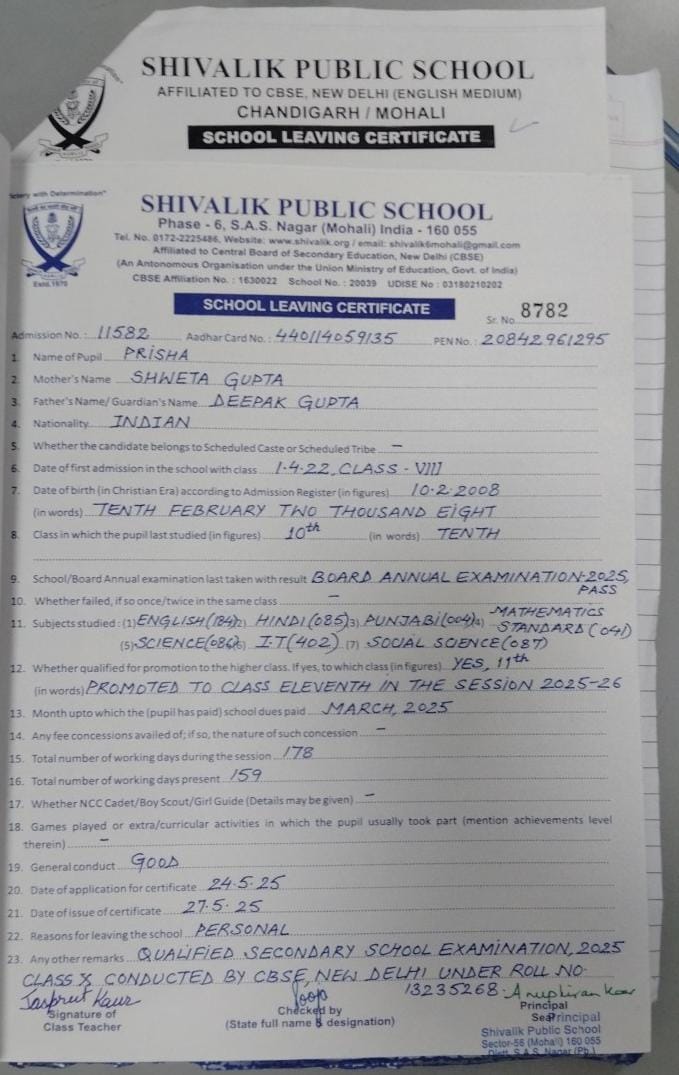 SHIVALIK PUBLIC SCHOOL
AFFILIATED TO CBSE, NEW DELHI (ENGLISH MEDIUM)
CHANDIGARH / MOHALI
SCHOOL LEAVING CERTIFICATE
with Determination"
SHIVALIK PUBLIC SCHOOL
Phase - 6, S.A.S. Nagar (Mohali) India - 160 055
Tel. No. 0172-2225486, Website: www.shivalik.org / email: shivalik6mohali@gmail.com
Affiliated to Central Board of Secondary Education, New Delhi (CBSE)
(An Antonomous Organisation under the Union Ministry of Education, Govt. of India)
Estd.1970 CBSE Affiliation No. : 1630022 School No. : 20039 UDISE No : 03180210202
SCHOOL LEAVING CERTIFICATE
Sr. No. 8782
Admission No. : 11582 Aadhar Card No. : 440114059135 PEN No. : 20842961295
1. Name of Pupil PRISHA
2. Mother's Name SHWETA GUPTA
3. Father's Name/ Guardian's Name DEEPAK GUPTA
4. Nationality INDIAN
5. Whether the candidate belongs to Scheduled Caste or Scheduled Tribe –
6. Date of first admission in the school with class 1.4.22, CLASS - VIII
7. Date of birth (in Christian Era) according to Admission Register (in figures) 10.2.2008
(in words) TENTH FEBRUARY TWO THOUSAND EIGHT
8. Class in which the pupil last studied (in figures) 10th (in words) TENTH
9. School/Board Annual examination last taken with result BOARD ANNUAL EXAMINATION-2025,
PASS
10. Whether failed, if so once/twice in the same class –
11. Subjects studied : (1) ENGLISH(184) 2) HINDI(085) 3) PUNJABI(004) 4) MATHEMATICS STANDARD(041)
(5) SCIENCE(086) 6) I.T(402) (7) SOCIAL SCIENCE(087)
12. Whether qualified for promotion to the higher class. If yes, to which class (in figures) YES, 11th
(in words) PROMOTED TO CLASS ELEVENTH IN THE SESSION 2025-26
13. Month upto which the (pupil has paid) school dues paid MARCH, 2025
14. Any fee concessions availed of; if so, the nature of such concession –
15. Total number of working days during the session 178
16. Total number of working days present 159
17. Whether NCC Cadet/Boy Scout/Girl Guide (Details may be given) –
18. Games played or extra/curricular activities in which the pupil usually took part (mention achievements level
therein) –
19. General conduct GOOD
20. Date of application for certificate 24.5.25
21. Date of issue of certificate 27.5.25
22. Reasons for leaving the school PERSONAL
23. Any other remarks QUALIFIED SECONDARY SCHOOL EXAMINATION, 2025
CLASS X CONDUCTED BY CBSE, NEW DELHI UNDER ROLL NO.
13235268.
Jasprut Kaur
Signature of
Class Teacher
Checked by
(State full name & designation)
Principal
Seal
Principal
Shivalik Public School
Sector-56 (Mohali) 160 055
Distt. S.A.S. Nagar (Pb.)